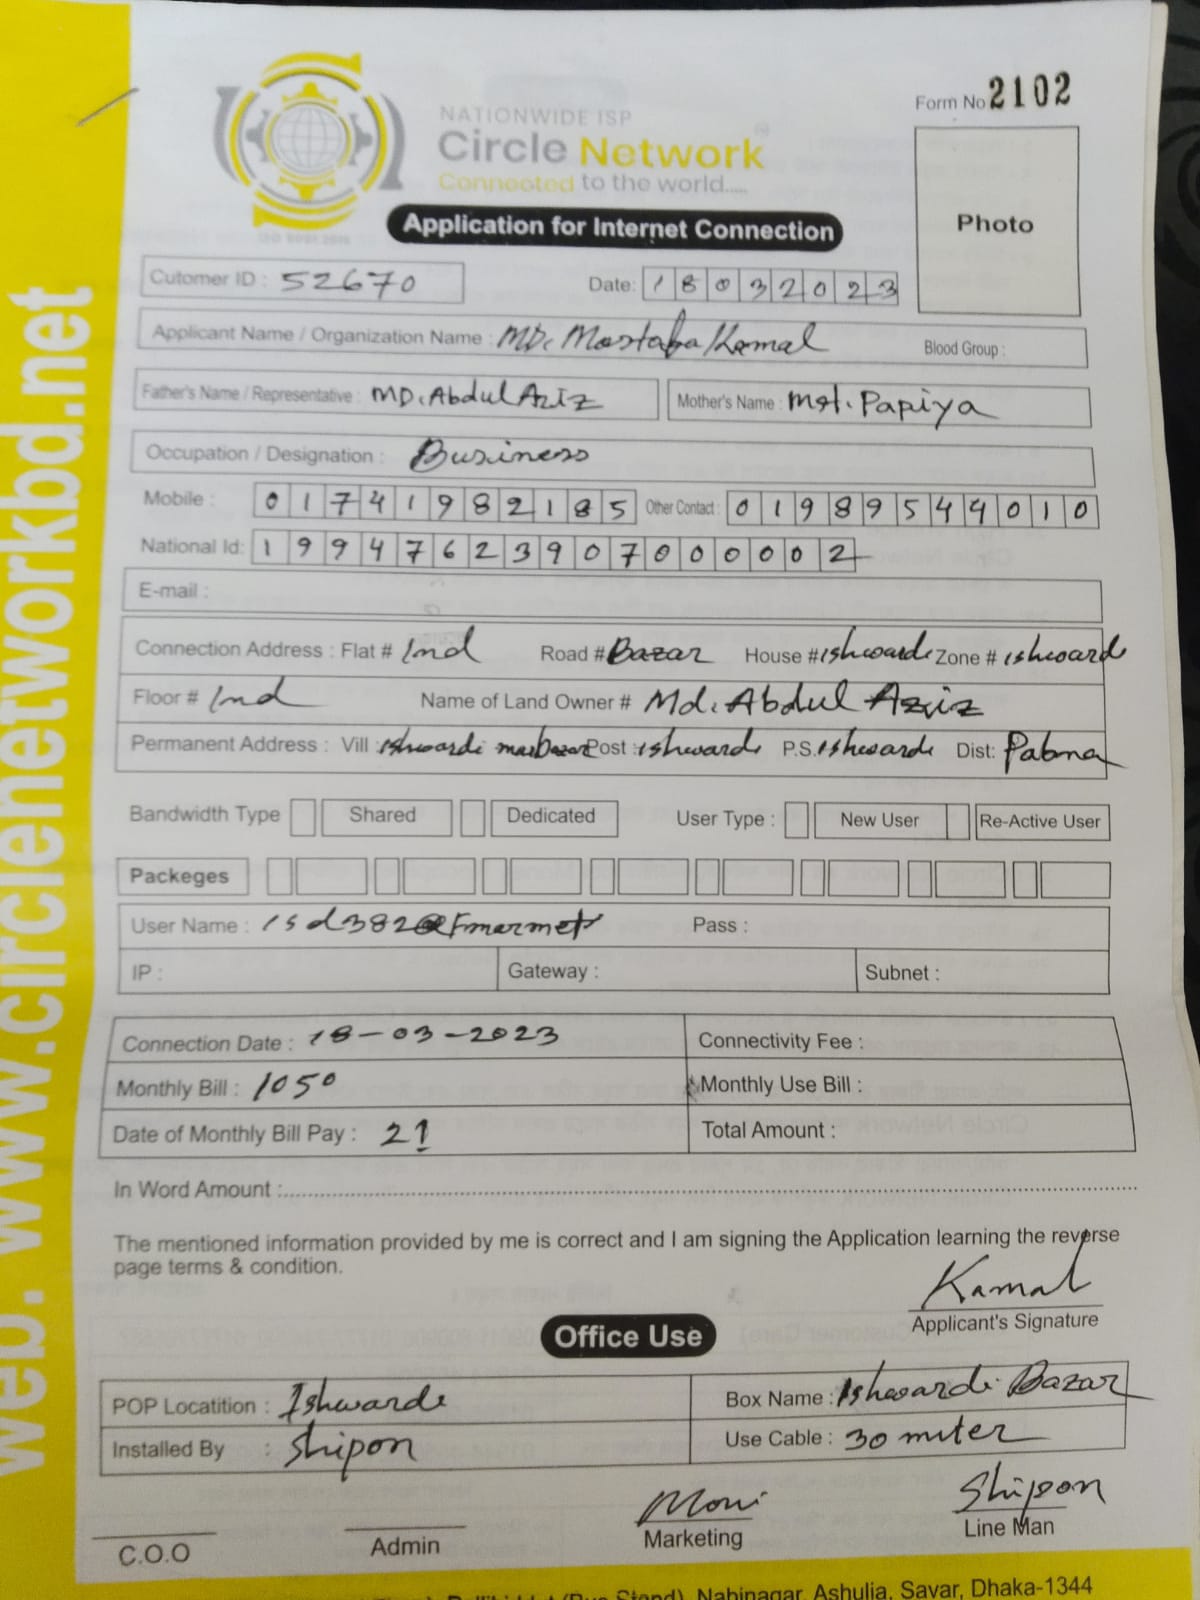 Form No 2102
NATIONWIDE ISP
Circle Network
Connected to the world.....
Application for Internet Connection
Photo
Cutomer ID : 52670 Date: 18032023
Applicant Name / Organization Name : MD. Mostafa Kamal Blood Group :
Father's Name / Representative : MD. Abdul Aziz Mother's Name : Mst. Papiya
Occupation / Designation : Business
Mobile : 01741982185 Other Contact : 01989544010
National Id: 19947623907000002
E-mail :
Connection Address : Flat # Ind Road # Bazar House # ishwardi Zone # ishwardi
Floor # Ind Name of Land Owner # Md. Abdul Aziz
Permanent Address : Vill : ishwardi Post : ishwardi P.S. ishwardi Dist: Pabna
Bandwidth Type Shared Dedicated User Type : New User Re-Active User
Packeges
User Name : isd382@ Pass :
IP : Gateway : Subnet :
Connection Date : 18-03-2023 Connectivity Fee :
Monthly Bill : 1050 Monthly Use Bill :
Date of Monthly Bill Pay : 21 Total Amount :
In Word Amount :
The mentioned information provided by me is correct and I am signing the Application learning the reverse
page terms & condition.
Kamal
Applicant's Signature
Office Use
POP Locatition : Ishwardi Box Name : Ishwardi Bazar
Installed By : Shipon Use Cable : 30 miter
Moni Shipon
C.O.O Admin Marketing Line Man
(Bus Stand), Nabinagar, Ashulia, Savar, Dhaka-1344
web: www.circlenetworkbd.net